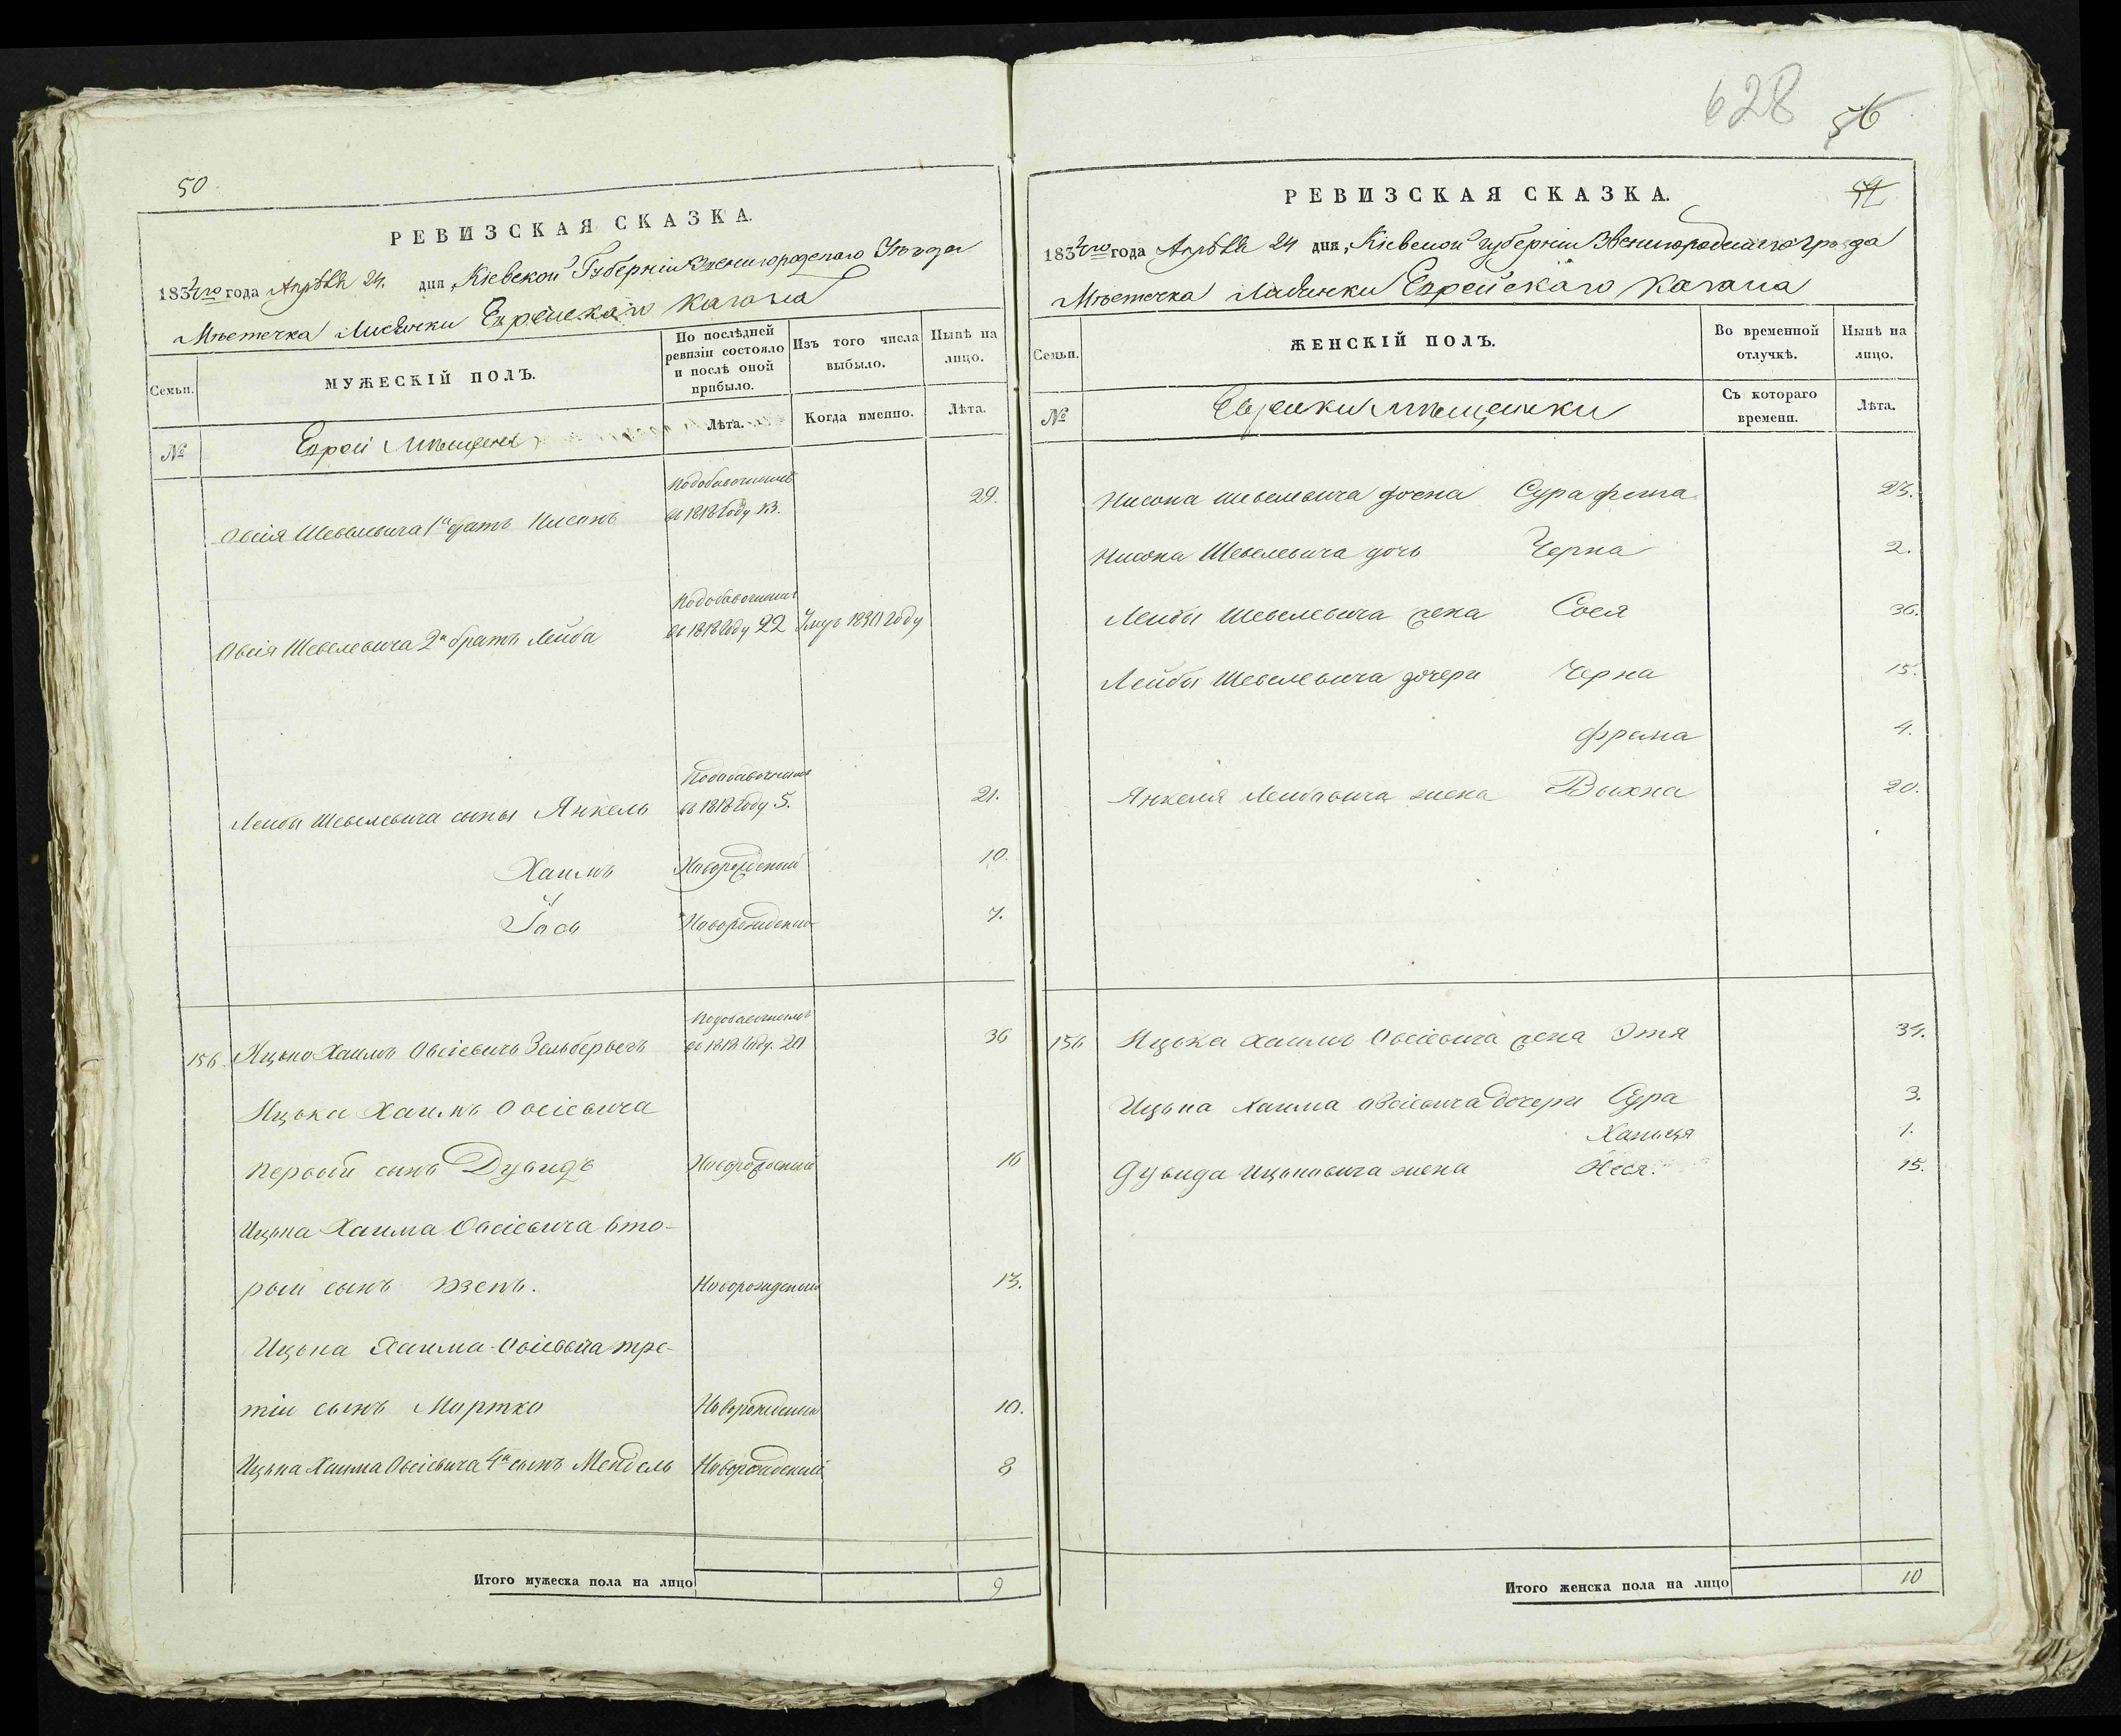 50
РЕВИЗСКАЯ СКАЗКА.
1834го года Апрѣля 24. дня, Кіевской Губерніи Звенигородскаго Уѣзда
Мѣстечка Лисянки Еврейскаго Кагала
Семьи.
МУЖЕСКІЙ ПОЛЪ.
По послѣдней ревизіи состояло и послѣ оной прибыло.
Изъ того числа выбыло.
Нынѣ на лицо.
№
Евреи Мѣщане
Лѣта.
Когда именно.
Лѣта.
Подобавочнымъ
Овсія Шевелевича 1й братъ Нисонъ въ 1818 Году 13. 29.
Подобавочнымъ
Овсія Шевелевича 2й братъ Лейба въ 1818 Году 22 Умръ 1830 Году
Подобавочнымъ
Лейбы Шевелевича сыны Янкель въ 1818 Году 5. 21.
Хаимъ Новорожденый 10.
Іось Новорожденый 7.
Подобавочнымъ
156 Ицько Хаимъ Овсіевичъ Зельберъегъ въ 1818 Году. 20 36
Ицька Хаимъ Овсіевича
первый сынъ Дувидъ Новорожденый 16
Ицька Хаима Овсіевича вто-
рый сынъ Новорожденый 13.
Ицька Хаима Овсіевича тре-
тіи сынъ Мортко Новорожденый 10.
Ицька Хаима Овсіевича 4й сынъ Мендель Новорожденый 8
Итого мужеска пола на лицо 9
628 56
РЕВИЗСКАЯ СКАЗКА.
1834го года Апрѣля 24 дня, Кіевской губерніи Звенигородскаго уѣзда
Мѣстечка Лисянки Еврейскаго Кагала
Семьи.
ЖЕНСКІЙ ПОЛЪ.
Во временной отлучкѣ.
Нынѣ на лицо.
№
Еврейки Мѣщанки
Съ котораго времени.
Лѣта.
Нисона Шевелевича жена Сура фрима 23.
Нисона Шевелевича дочь Черна 2.
Лейбы Шевелевича жена Сося 36.
Лейбы Шевелевича дочери Черна 15.
фрима 4.
Янкеля Лейбовича жена Выхна 20.
156 Ицька Хаимъ Овсіевича жена Этя 34.
Ицька Хаима Овсіевича дочери Сура 3.
Ханьця 1.
Дувида Ицьковича жена Неся. 15.
Итого женска пола на лицо 10